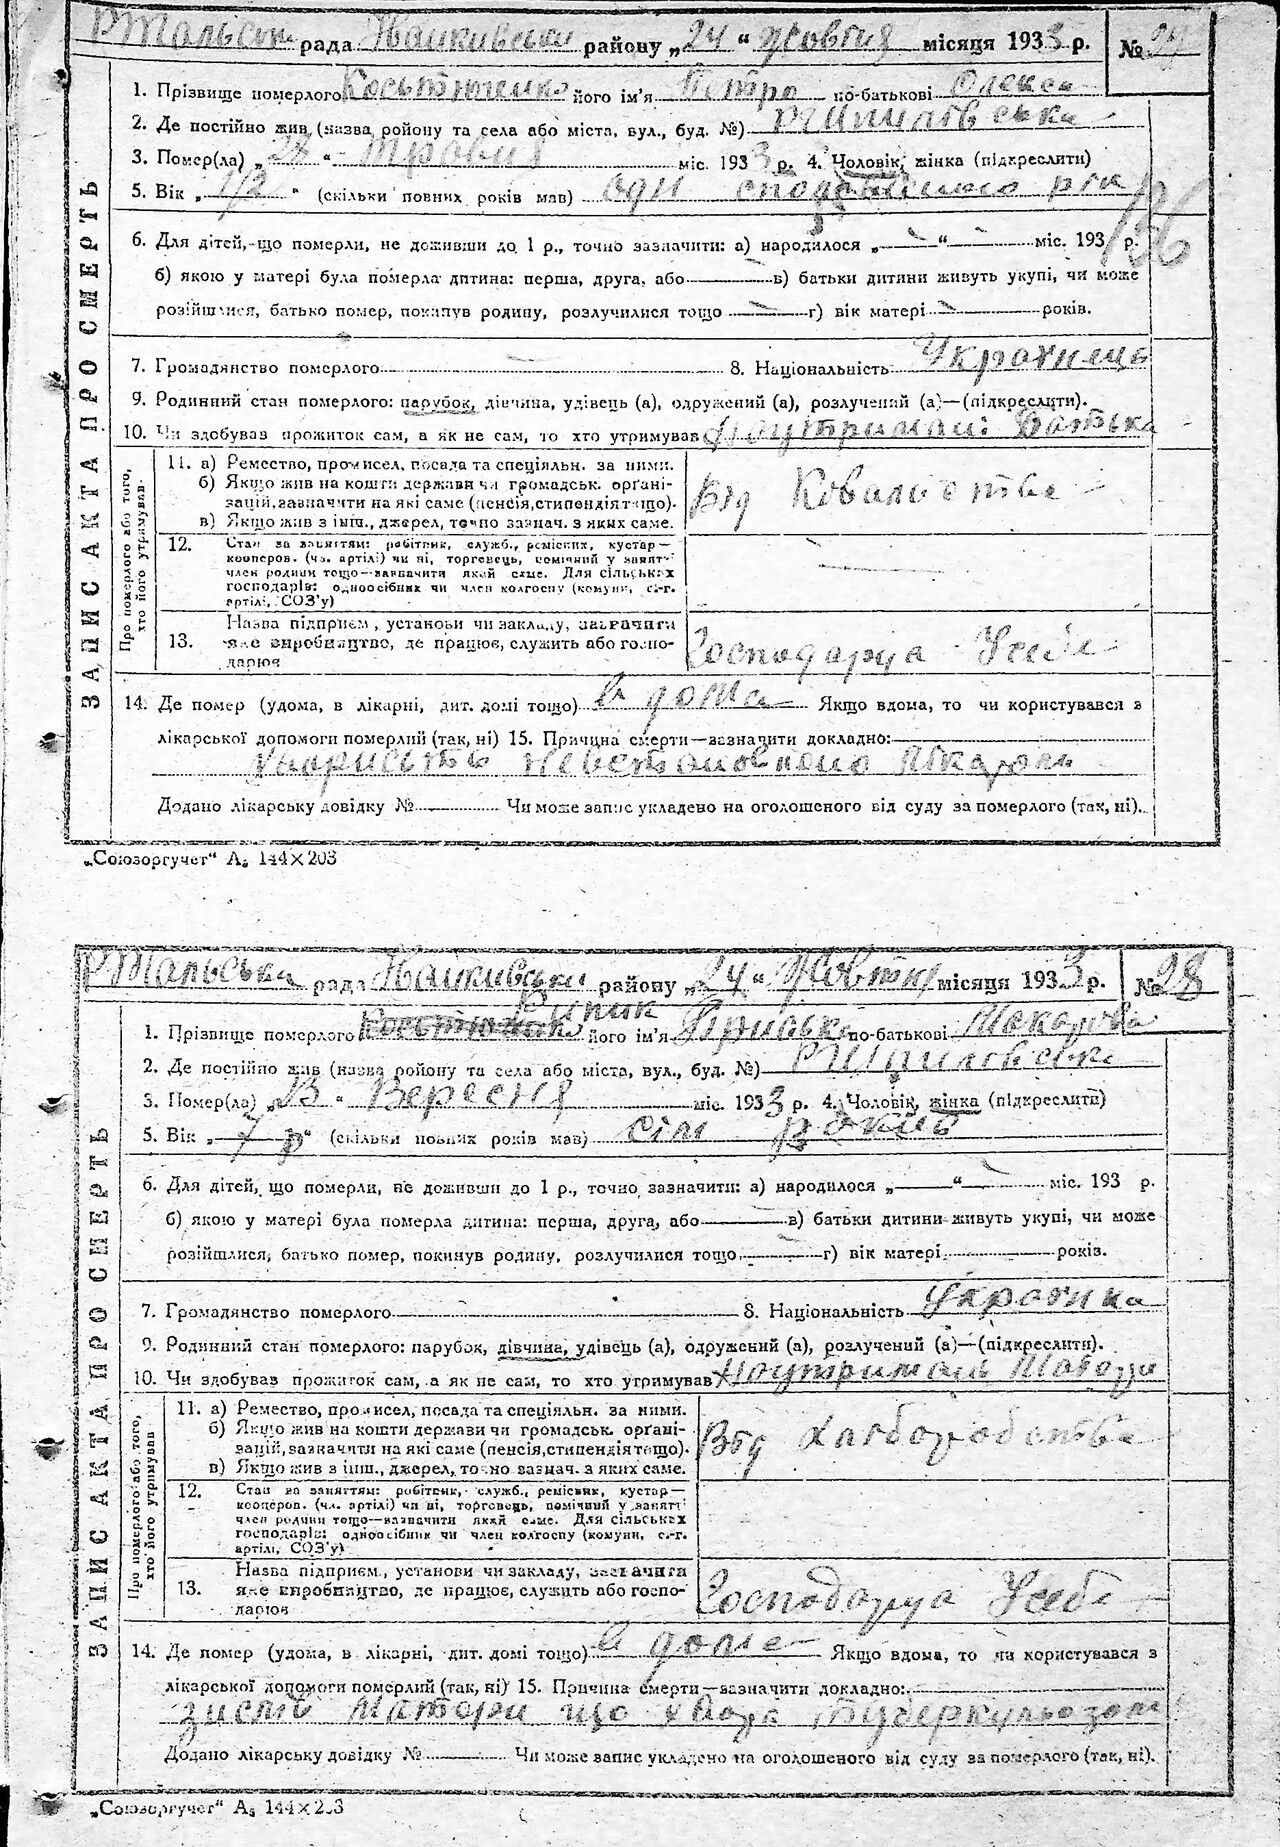 рада району „24“ Жовтня місяця 1933 р. №
1. Прізвище померлого його ім'я Петро по-батькові Олекса
2. Де постійно жив (назва ройону та села або міста, вул., буд. №)
3. Помер(ла) „28“ Травня міс. 1933 р. 4. Чоловік, жінка (підкреслити)
5. Вік „1/2“ (скільки повних років мав) рік
136
6. Для дітей, що померли, не доживши до 1 р., точно зазначити: а) народилося „—“ — міс. 193 р.
б) якою у матері була померла дитина: перша, друга, або в) батьки дитини живуть укупі, чи може
розійшлися, батько помер, покинув родину, розлучилися тощо г) вік матері років.
7. Громадянство померлого 8. Національність Украінець
9. Родинний стан померлого: парубок, дівчина, удівець (а), одружений (а), розлучений (а)—(підкреслити).
10. Чи здобував прожиток сам, а як не сам, то хто утримував Батька
ЗАПИС АКТА ПРО СМЕРТЬ
Про померлого або того, хто його утримував.
11. а) Ремество, промисел, посада та спеціяльн. за ними.
б) Якщо жив на кошти держави чи громадськ. органі-
зацій, зазначити на які саме (пенсія, стипендія тощо).
в) Якщо жив з інш., джерел, точно зазнач. з яких саме.
Від Ковальства
12. Стан за заняттям: робітник, служб., ремісник, кустар—
кооперов. (чл. артілі) чи ні, торговець, помічний у занятт
член родини тощо—зазначити який саме. Для сільських
господарів: одноосібник чи член колгоспу (комуни, с.-г.
артілі, СОЗ'у)
13. Назва підприєм., установи чи закладу, зазначити
яке виробництво, де працює, служить або госпо-
дарює
Господарує Усебе
14. Де помер (удома, в лікарні, дит. домі тощо) в дома Якщо вдома, то чи користувався з
лікарської допомоги померлий (так, ні) 15. Причина смерти—зазначити докладно:
невстановлено лікаром
Додано лікарську довідку № Чи може запис укладено на оголошеного від суду за померлого (так, ні).
„Союзоргучет“ А₅ 144×203
рада району „24“ Жовтня місяця 1933 р. № 28
1. Прізвище померлого його ім'я по-батькові Макарова
2. Де постійно жив (назва ройону та села або міста, вул., буд. №)
3. Помер(ла) „ “ Вересня міс. 1933 р. 4. Чоловік, жінка (підкреслити)
5. Вік „7 р“ (скільки повних років мав) сім рокив
6. Для дітей, що померли, не доживши до 1 р., точно зазначити: а) народилося „—“ міс. 193 р.
б) якою у матері була померла дитина: перша, друга, або в) батьки дитини живуть укупі, чи може
розійшлися, батько помер, покинув родину, розлучилися тощо г) вік матері років.
7. Громадянство померлого 8. Національність Украінка
9. Родинний стан померлого: парубок, дівчина, удівець (а), одружений (а), розлучений (а)—(підкреслити).
10. Чи здобував прожиток сам, а як не сам, то хто утримував
ЗАПИС АКТА ПРО СМЕРТЬ
Про померлого або того, хто його утримував
11. а) Ремество, промисел, посада та спеціяльн. за ними.
б) Якщо жив на кошти держави чи громадськ. органі-
зацій, зазначити на які саме (пенсія, стипендія тощо).
в) Якщо жив з інш., джерел, точно зазнач. з яких саме.
Від Хлеборобства
12. Стан за заняттям: робітник, служб., ремісник, кустар—
кооперов. (чл. артілі) чи ні, торговець, помічний у занятт
член родини тощо—зазначити який саме. Для сільських
господарів: одноосібник чи член колгоспу (комуни, с.-г.
артілі, СОЗ'у)
13. Назва підприєм., установи чи закладу, зазначити
яке виробництво, де працює, служить або госпо-
дарює
Господарує Усебе
14. Де помер (удома, в лікарні, дит. домі тощо) в доме Якщо вдома, то чи користувався з
лікарської допомоги померлий (так, ні) 15. Причина смерти—зазначити докладно:
зислів Матери що хвора туберкульозом
Додано лікарську довідку № Чи може запис укладено на оголошеного від суду за померлого (так, ні).
„Союзоргучет“ А₅ 144×203